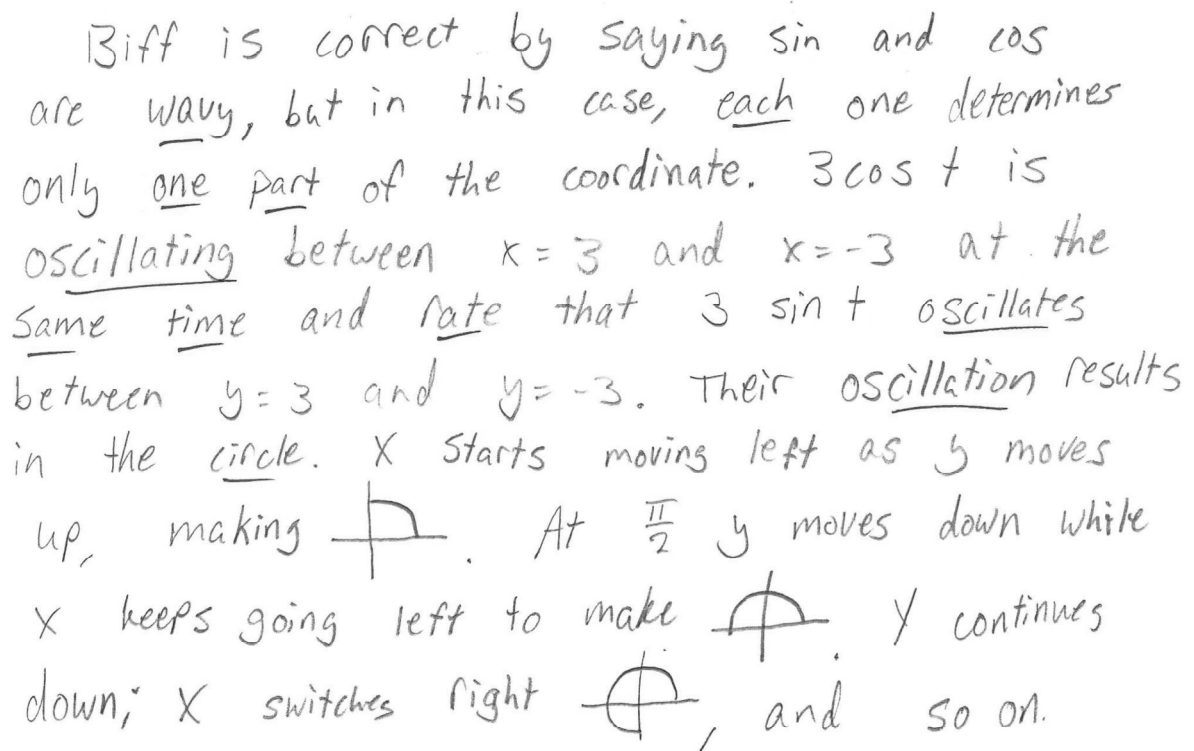 Biff is correct by saying sin and cos
are wavy, but in this case, each one determines
only one part of the coordinate. 3 cos t is
oscillating between x = 3 and x = -3 at the
same time and rate that 3 sin t oscillates
between y = 3 and y = -3. Their oscillation results
in the circle. X starts moving left as y moves
up, making . At π/2 y moves down while
X keeps going left to make . Y continues
down; X switches right , and so on.